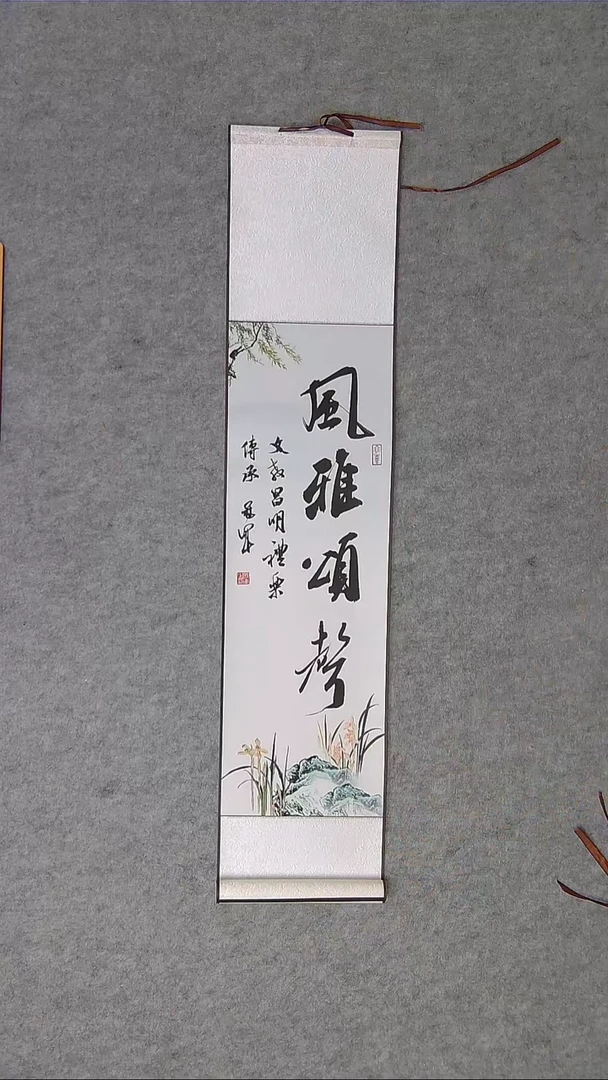 風雅頌聲
文教昌明禮樂
傳承